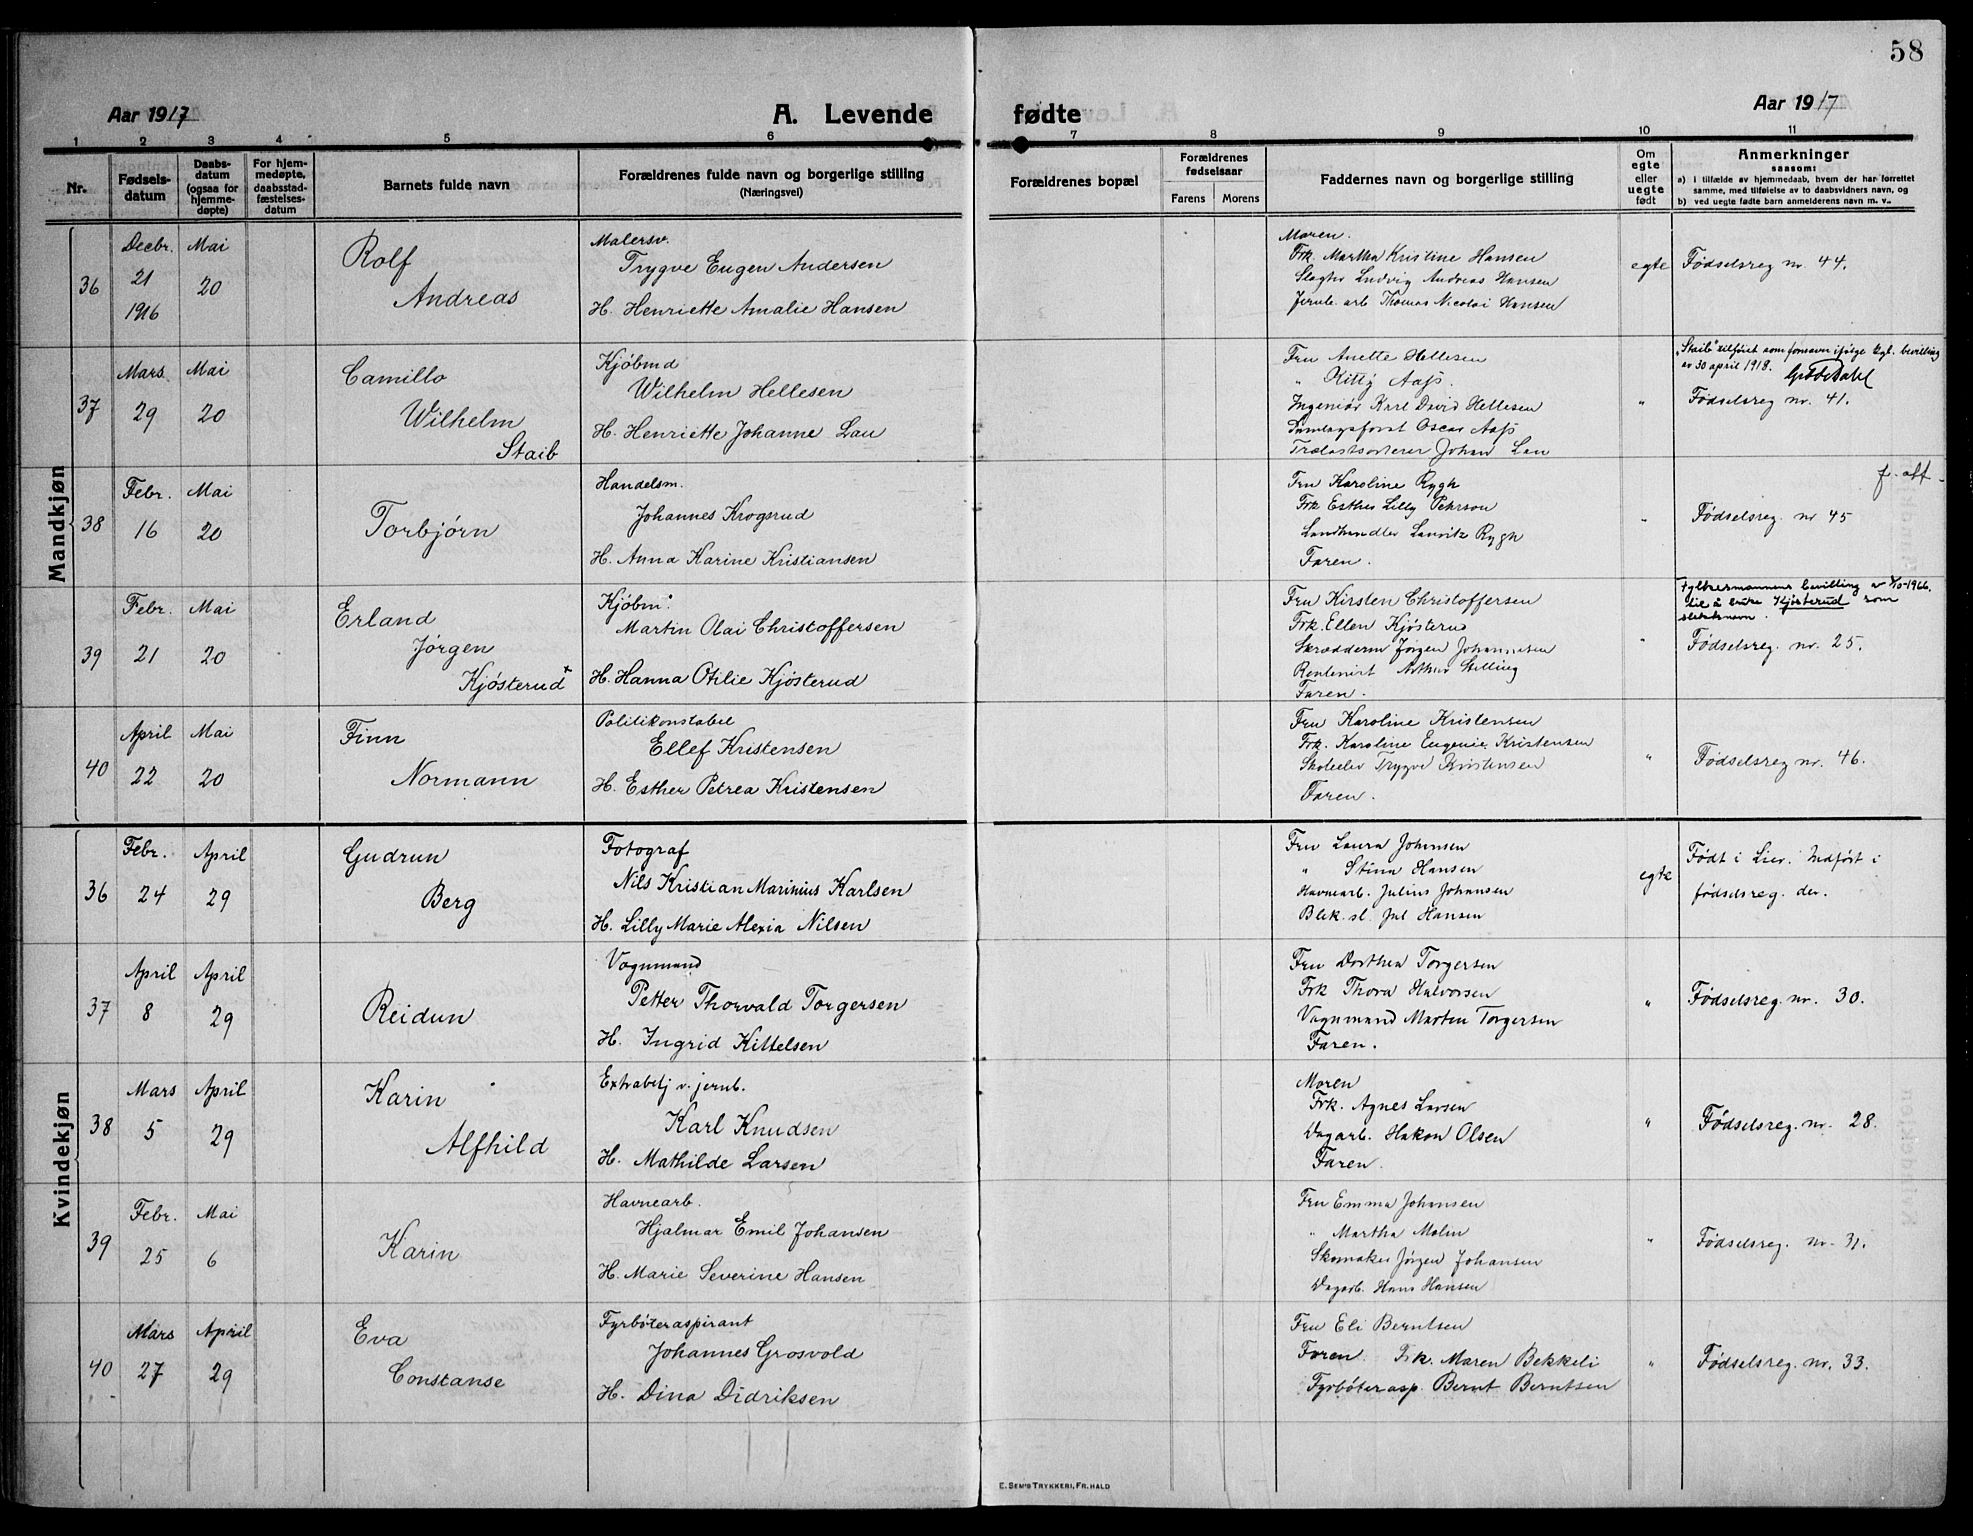 58
Aar 1917
A. Levende fødte
Aar 1917
1 2 3 4 5 6 7 8 9 10 11
Nr.
Fødselsdatum
Daabsdatum (ogsaa for hjemmedøpte)
For hjemmedøpte, daabsstadfæstelsesdatum
Barnets fulde navn
Forældrenes fulde navn og borgerlige stilling
(Næringsvei)
Forældrenes bopæl
Forældrenes fødselsaar
Farens Morens
Faddernes navn og borgerlige stilling
Om egte eller uegte født
Anmerkninger
saasom:
a) i tilfælde av hjemmedaab, hvem der har forrettet
samme, med tilføielse av to daabsvidners navn, og
b) ved uegte fødte barn anmelderens navn m. v..
Mandkjøn
36
Decbr. 21 1916
Mai 20
Rolf
Andreas
Malersv.
Trygve Eugen Andersen
H. Henriette Amalie Hansen
Moren.
Frk. Martha Kristine Hansen
Slagter Ludvig Andreas Hansen
Jernb. arb Thomas Nicolai Hansen
egte
Fødselsreg nr. 44.
37
Mars 29
Mai 20
Camillo
Wilhelm
Staib
Kjøbmd
Wilhelm Hellesen
H. Henriette Johanne Lau
Fru Anette Hellesen
" Kitty Aass.
Ingeniør Karl David Hellesen
Oscar Aass
Trælastsorterer Johan Lau
"
"Staib" tilføiet som fornavn ifølge kgl. bevilling
av 30 april 1918.
Fødselsreg nr. 41.
38
Febr. 16
Mai 20
Torbjørn
Handelsm.
Johannes Krogsrud
H. Anna Karine Kristiansen
Fru Karoline Rygh
Frk Esther Lilly Pehrson
Landhandler Lauritz Rygh
Faren.
"
f. att.
Fødselsreg. nr 45
39
Febr. 21
Mai 20
Erland
Jørgen
Kjøsterud +
Kjøbm.
Martin Olai Christoffersen
H. Hanna Otilie Kjøsterud
Fru Kirsten Christoffersen
Frk. Ellen Kjøsterud
Skrædderm Jørgen Johannesen
Rentenist Arthur Stilling
Faren.
"
Fylkesmannens bevilling av 1966.
til å bruke Kjøsterud som
slektsnavn.
Fødselsreg. nr. 25.
40
April 22
Mai 20
Finn
Normann
Politikonstabel
Ellef Kristensen
H. Esther Petrea Kristensen
Fru Karoline Kristensen
Frk. Karoline Eugenie Kristensen
Skoleelev Trygve Kristensen
Faren.
"
Fødselsreg nr. 46.
Kvindekjøn
36
Febr. 24
April 29
Gudrun
Berg
Fotograf
Nils Kristian Marinius Karlsen
H. Lilly Marie Alexia Nilsen
Fru Laura Johansen
" Stina Hansen
Havnearb. Julius Johansen
Blek. sl. Jul Hansen
egte
Født i Lier. Indført i
fødselsreg. der.
37
April 8
April 29
Reidun
Vognmand
Petter Thorvald Torgersen
H. Ingrid Kittelsen
Fru Dorthea Torgersen
Frk Thora Halvorsen
Vognmand Marten Torgersen
Faren.
"
Fødselsreg. nr. 30.
38
Mars 5
April 29
Karin
Alfhild
Extrabetj v. jernb.
Karl Knudsen
H. Mathilde Larsen
Moren
Frk. Agnes Larsen
Dagarb. Hakon Olsen
Faren.
"
Fødselsreg. nr. 28.
39
Febr. 25
Mai 6
Karin
Havnearb.
Hjalmar Emil Johansen
H. Marie Severine Hansen
Fru Emma Johansen
" Martha Malm
Skomaker Jørgen Johansen
Dagarb. Hans Hansen
"
Fødselsreg. nr. 31.
40
Mars 27
April 29
Eva
Constanse
Fyrbøteraspirant
Johannes Grosvold
H. Dina Didriksen
Fru Eli Berntsen
Faren. Frk. Maren Bekkeli
Fyrbøterasp. Bernt Berntsen
"
Fødselsreg. nr. 33.
E. Sem's Trykkeri, Fr.hald